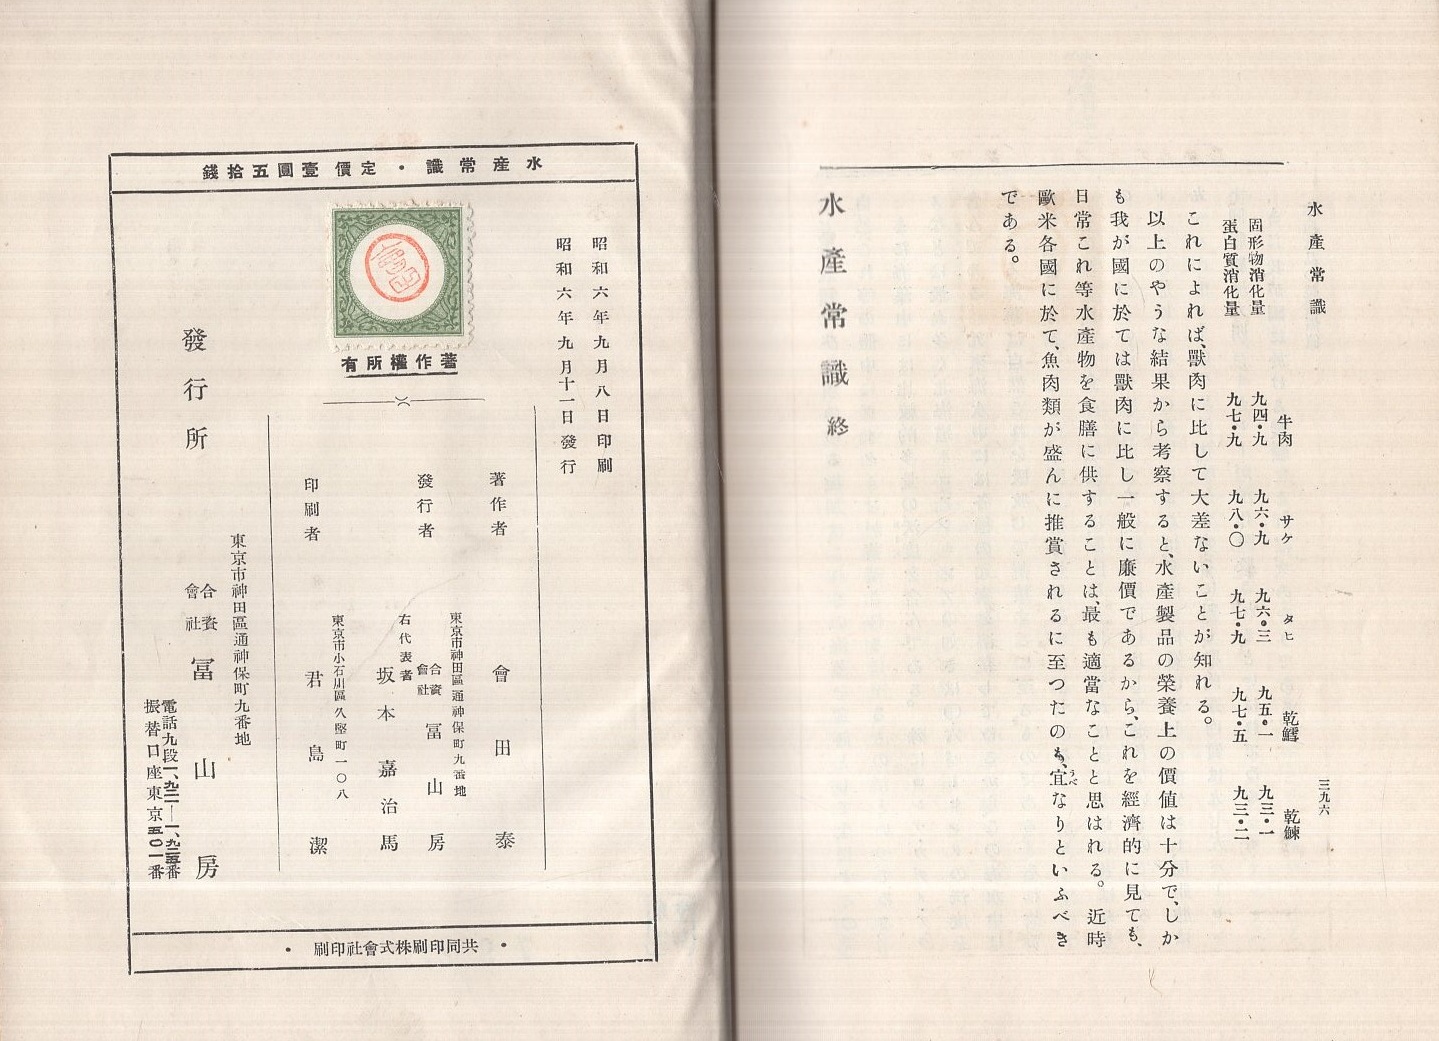 水產常識
三九六
牛肉　サケ　タヒ　乾鱈　乾鰊
固形物消化量　九四・九　九六・九　九六・三　九五・一　九三・一
蛋白質消化量　九七・九　九八・〇　九七・九　九七・五　九三・二
これによれば、獸肉に比して大差ないことが知れる。
以上のやうな結果から考察すると、水產製品の榮養上の價値は十分で、しか
も我が國に於ては獸肉に比し一般に廉價であるから、これを經濟的に見ても、
日常これ等水產物を食膳に供することは、最も適當なことと思はれる。近時
歐米各國に於て、魚肉類が盛んに推賞されるに至つたのも、宜なりといふべき
うべ
である。
水產常識 終
水產常識・定價壹圓五拾錢
著作權所有
昭和六年九月八日印刷
昭和六年九月十一日發行
著作者　會田泰
東京市神田區通神保町九番地
發行者　合資會社　冨山房
右代表者　坂本嘉治馬
東京市小石川區久堅町一〇八
印刷者　君島潔
東京市神田區通神保町九番地
發行所　合資會社　冨山房
電話九段一、九二一―一、九二五番
振替口座東京五〇一番
・共同印刷株式會社印刷・